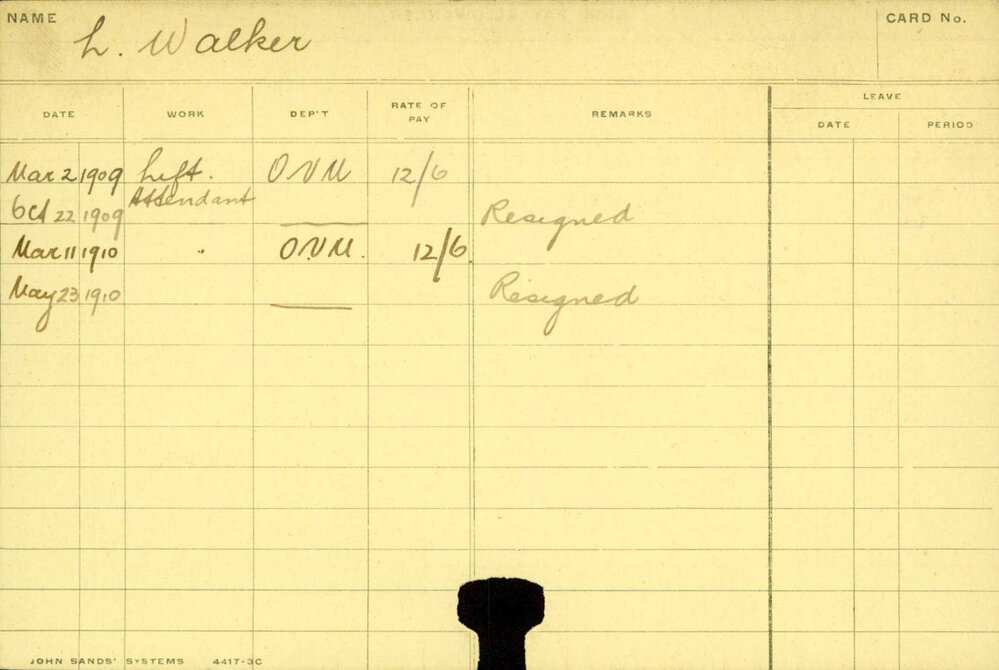 NAME L. Walker CARD No.
LEAVE
DATE WORK DEP'T RATE OF PAY REMARKS DATE PERIOD
Mar 2 1909 Lift. O V M 12/6
Attendant
Oct 22 1909 Resigned
Mar 11 1910 " O.V.M. 12/6
May 23 1910 Resigned
JOHN SANDS' SYSTEMS 4417-3C